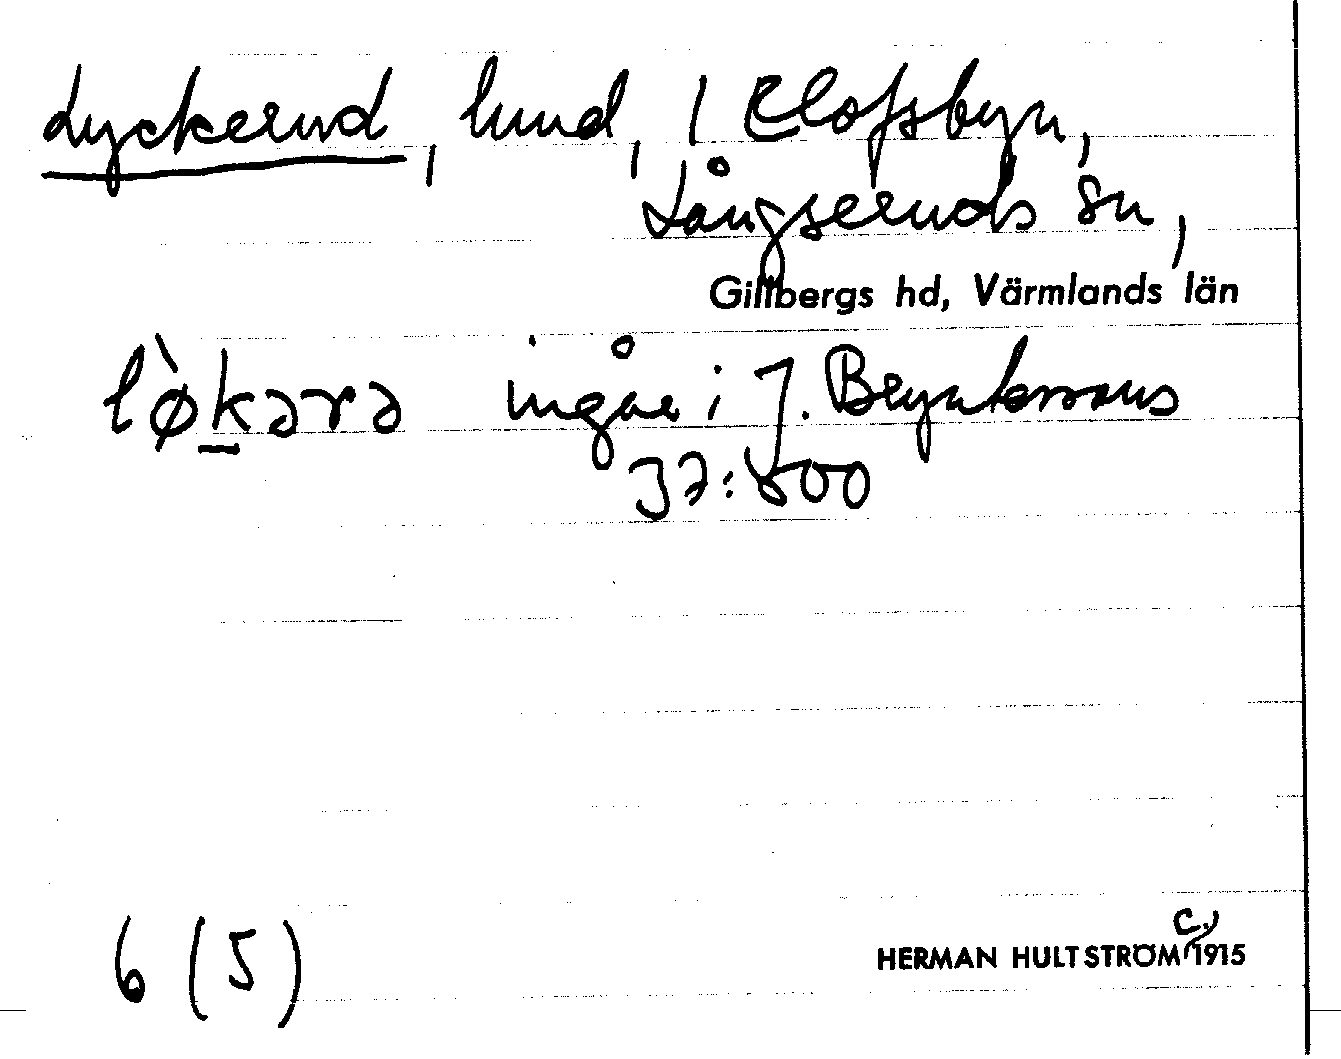 Lyckerud, lund, i Elofsbyn,
Långseruds sn,
Gillbergs hd, Värmlands län
lø̀kərə ingår i J. Bryntessons
37:500
6 (5)
HERMAN HULTSTRÖM c., 1915